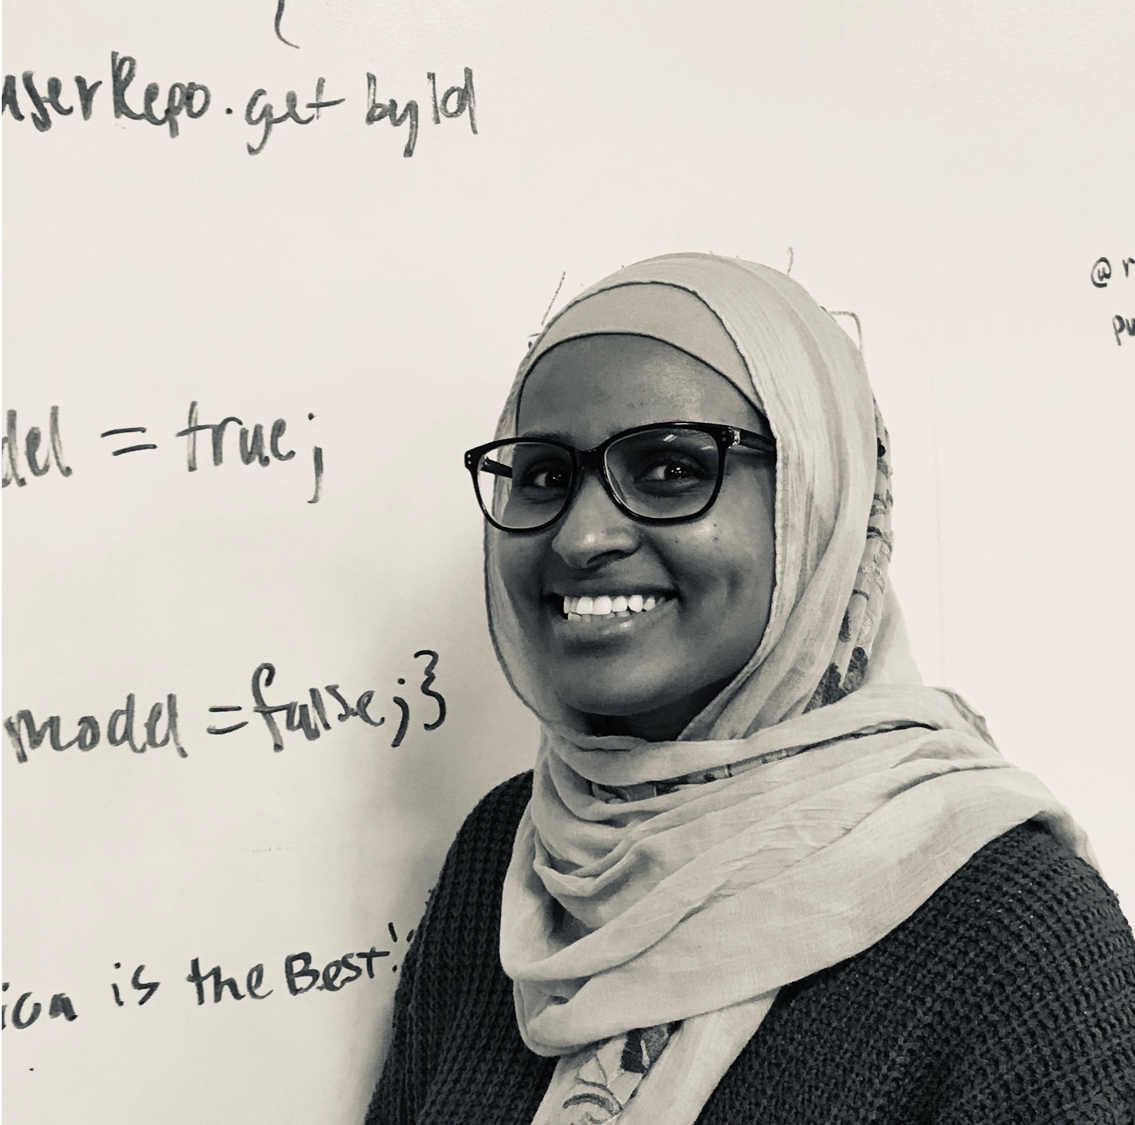 userRepo.get byId
@
= true;
model = false; }
is the Best!